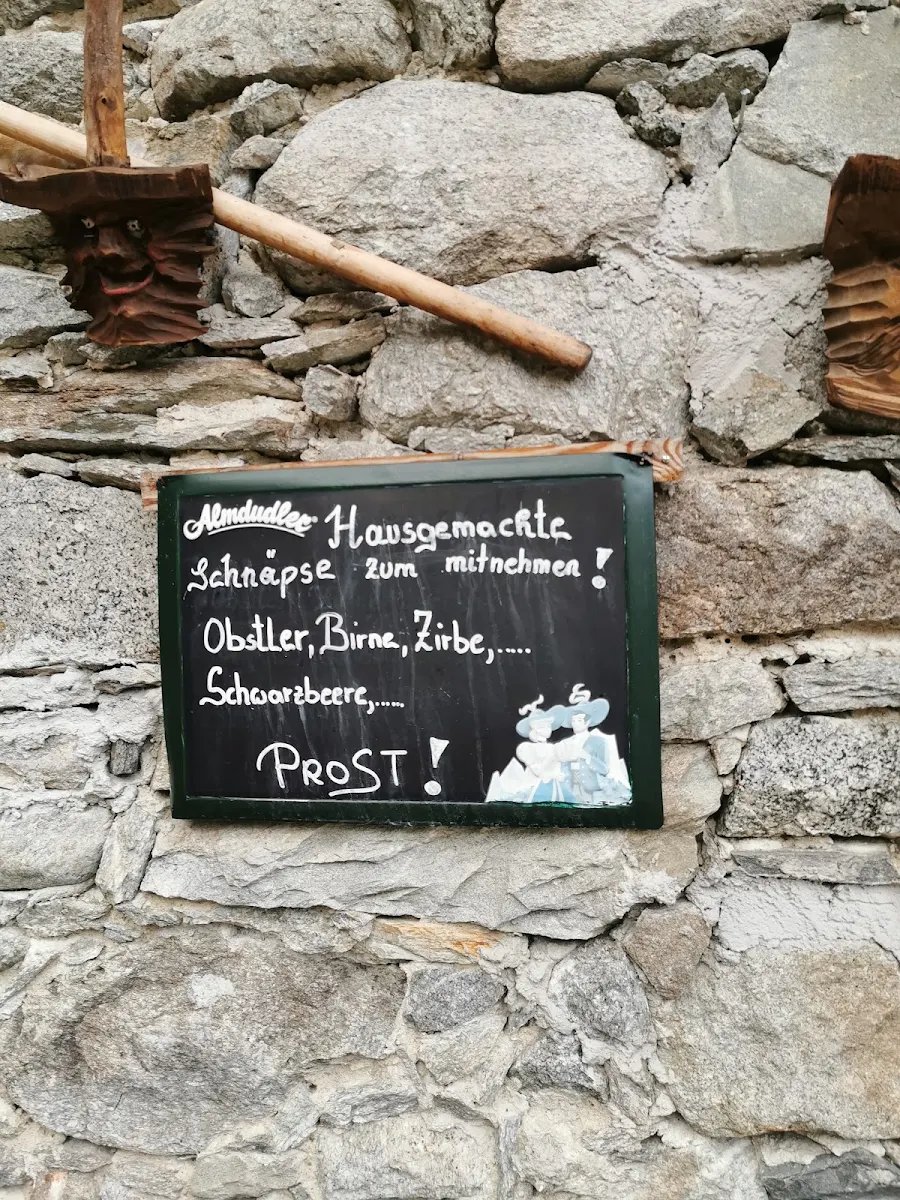 Almdudler Hausgemachte
Schnäpse zum mitnehmen !
Obstler, Birne, Zirbe,.....
Schwarzbeere,.....
PROST !